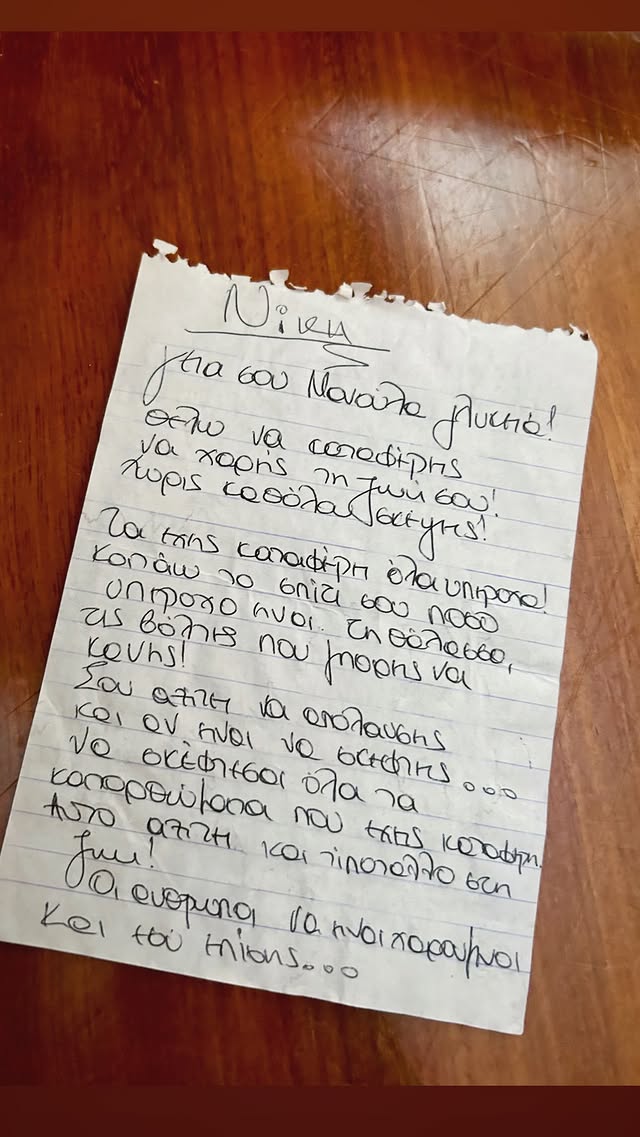 Νίκη
Γεια σου Μανούλα γλυκειά!
Θέλω να καταφέρης
να χαρής τη ζωή σου!
Χωρίς καθόλου σκέψης!
Τα έχης καταφέρη όλα υπέροχα!
Κοιτάω το σπίτι σου πόσο
υπέροχο ήναι. Τη θάλασσα,
τις βόλτες που μπορής να
κάνης!
Σου αξίζη να απολαύσης
και αν ήναι να σκεφτης...
να σκέφτεσαι όλα τα
κατορθώματα που έχης καταφέρη.
Αυτό αξίζη και τίποτα άλλο στη
ζωή!
Οι άνθρωποι να ήναι χαρούμενοι
και του